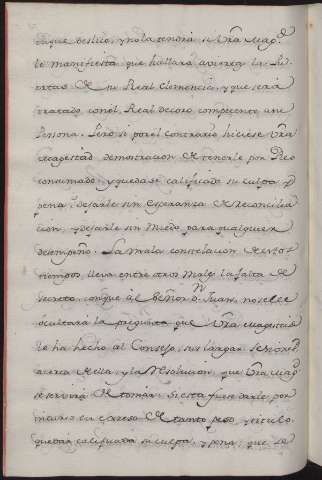 le manifiesta que hallara avierta la Pu-
ertas de su Real Clemencia, y que será
tratado con el Real decoro competente a una
Persona. Pero si por el contrario hiciese Vra
Magestad demostracion de tenerle por Reo
consumado, y quedase calificado su culpa, y
pena: dejarle sin esperanza de Reconcilia-
cion, y dejarle sin miedo para qualquier
desempeño. La mala constelacion de estos
tiempos lleva entre otros males la falta de
secreto, conque al Señor Dn Juan, no se le
ocultara la pregunta que Vra Magestad
le ha hecho al Consejo,
acerca de ella, y la Resolucion, que Vra Magd
se servirá de tomar. Si esta fuere darle por
incurso en exceso de tanto peso, y
quedar calificada su culpa, y pena: que se